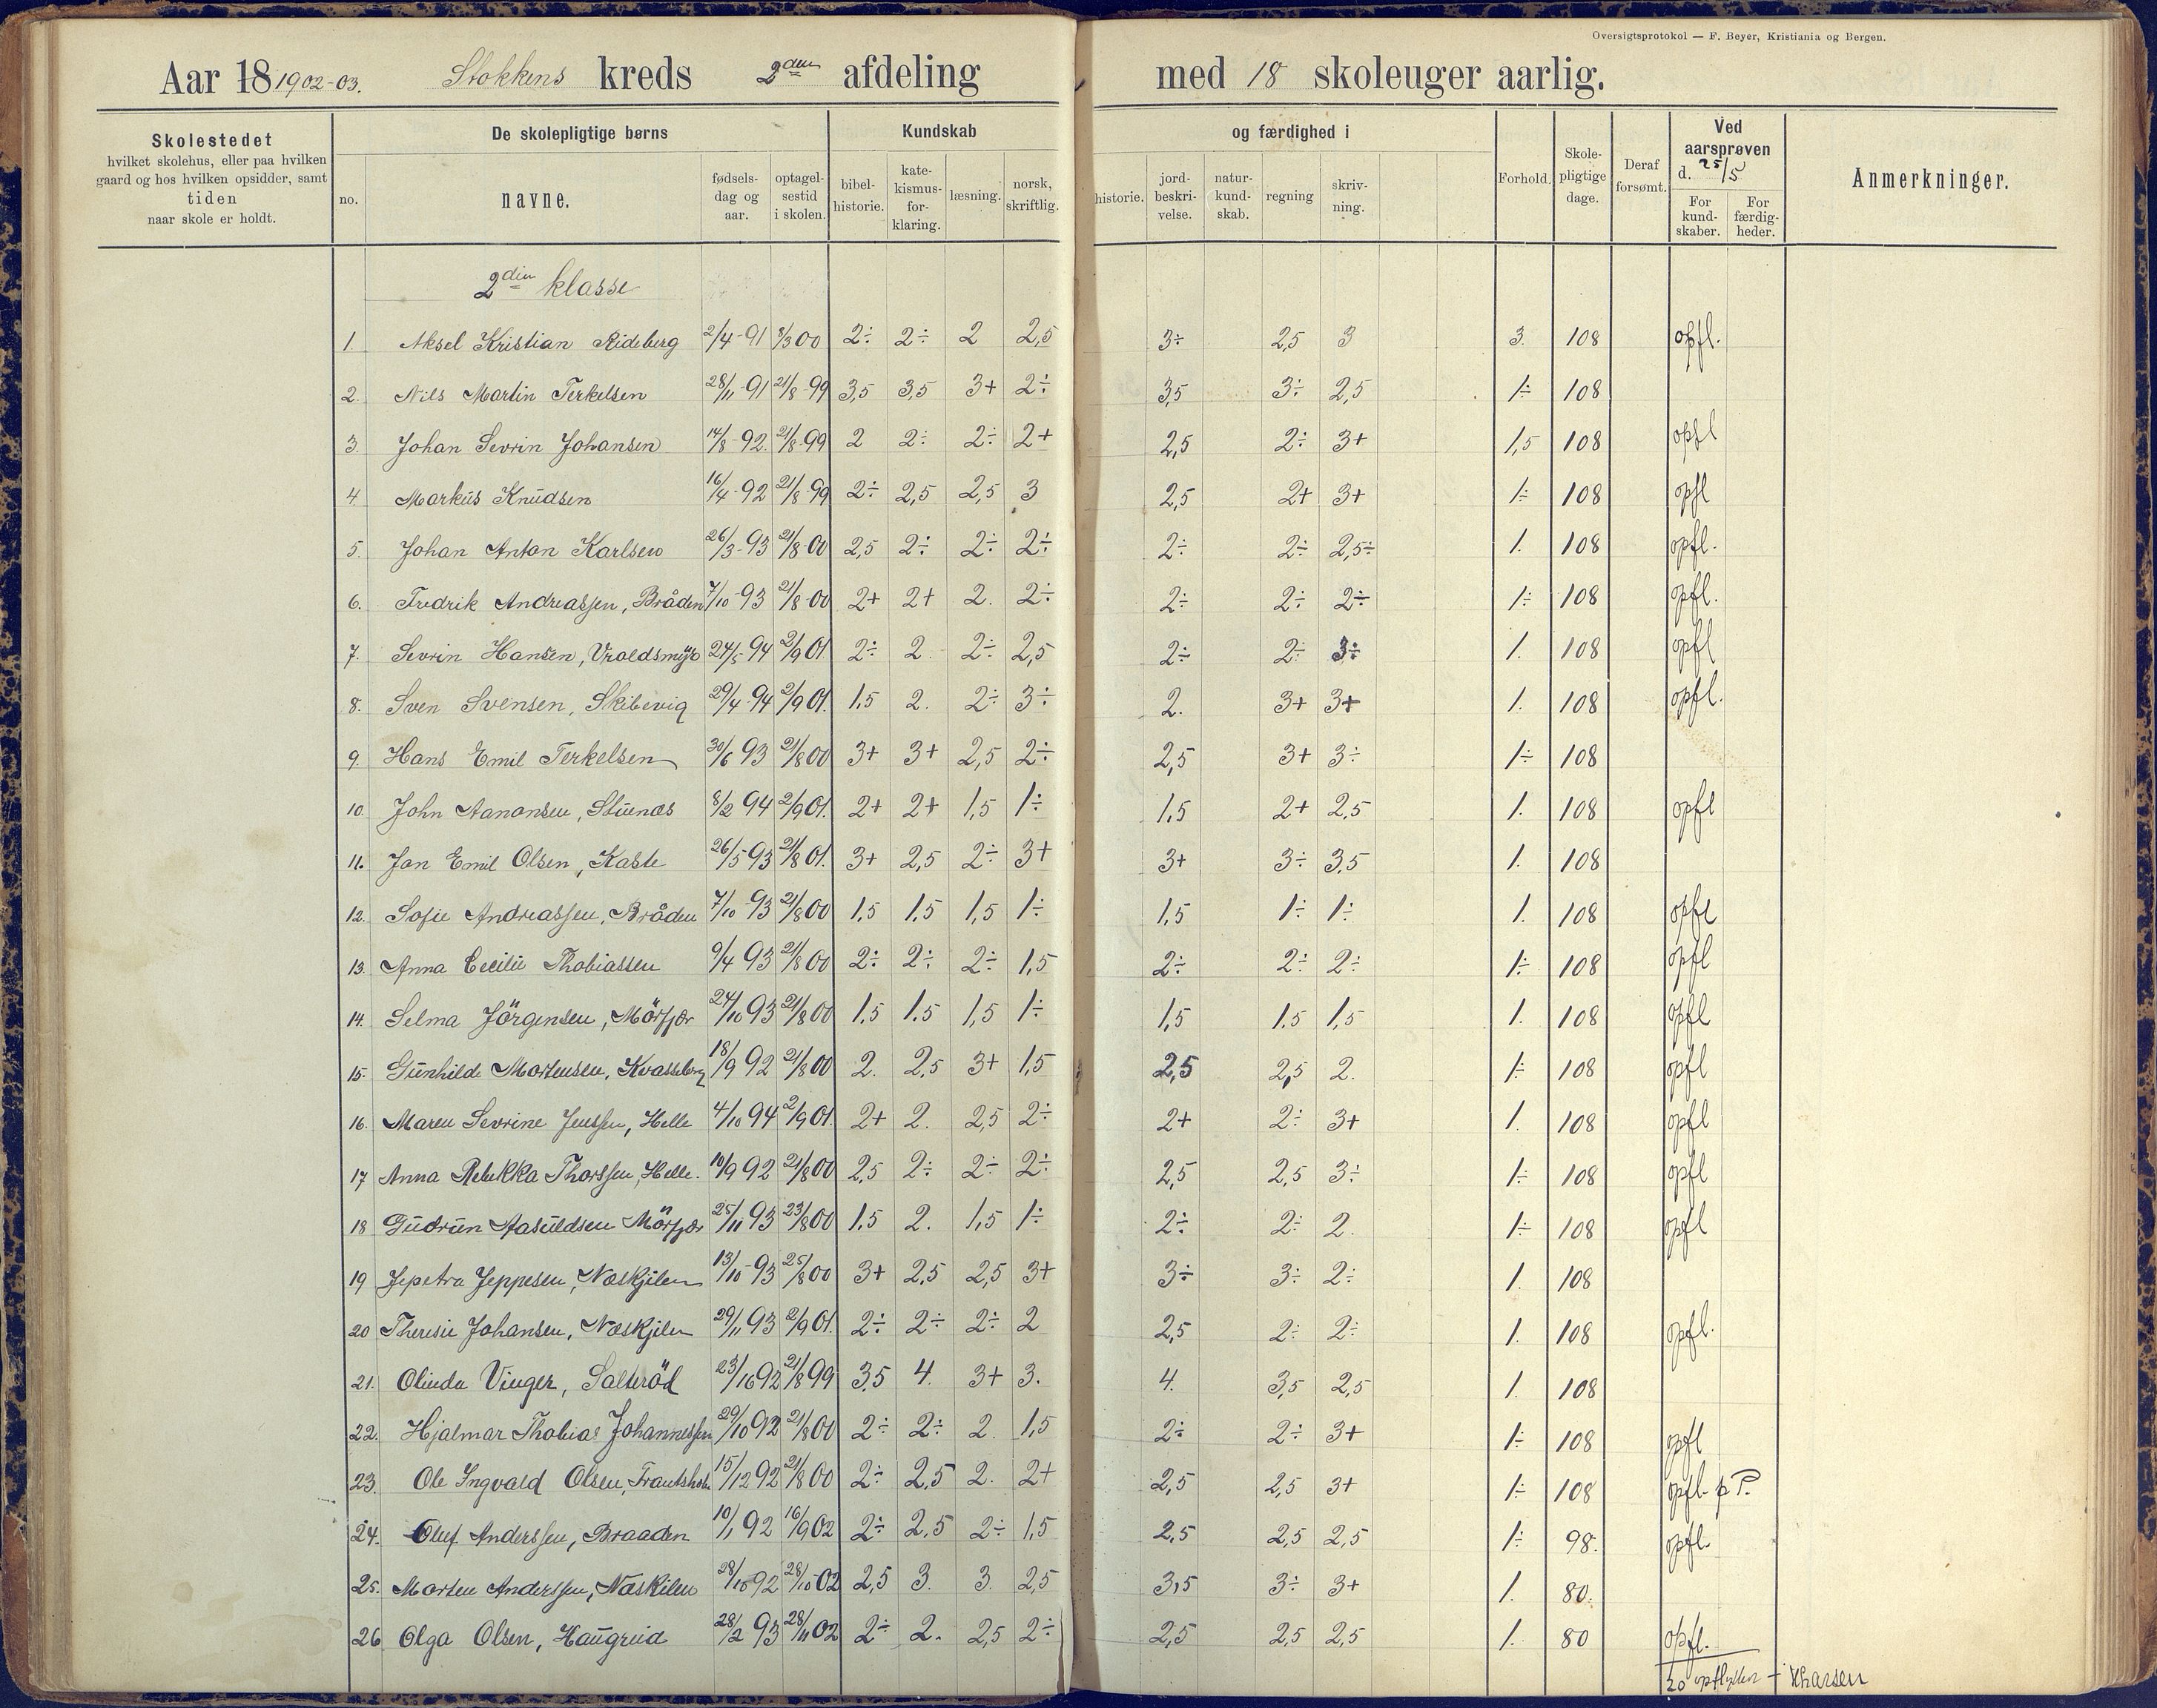 Oversigtsprotokol — F. Beyer, Kristiania og Bergen.
Aar 18 1902-03. Stokkens kreds 2den afdeling med 18 skoleuger aarlig.
Skolestedet hvilket skolehus, eller paa hvilken gaard og hos hvilken opsidder, samt tiden naar skole er holdt.
De skolepligtige børns
no. navne. fødselsdag og aar. optagelsestid i skolen.
Kundskab og færdighed i
bibelhistorie. katekismusforklaring. læsning. norsk, skriftlig. historie. jordbeskrivelse. naturkundskab. regning skrivning.
Forhold. Skolepligtige dage. Deraf forsømt.
Ved aarsprøven d. 25/5
For kundskaber. For færdigheder.
Anmerkninger.
2den klasse
1. Aksel Kristian Rideberg 2/4-91 8/3 00 2÷ 2÷ 2 2,5 3÷ 2,5 3 3. 108 opfl.
2. Nils Martin Terkelsen 28/11-91 21/8-99 3,5 3,5 3+ 2÷ 3,5 3÷ 2,5 1÷ 108
3. Johan Sevrin Johansen 14/8-92. 21/8-99 2 2÷ 2÷ 2+ 2,5 2÷ 3+ 1,5 108 opfl
4. Markus Knudsen 16/4-92 21/8-99 2÷ 2,5 2,5 3 2,5 2+ 3+ 1÷ 108 opfl
5. Johan Anton Karlsen 26/3-93 21/8-00 2,5 2÷ 2÷ 2÷ 2÷ 2÷ 2,5÷ 1. 108 opfl.
6. Fredrik Andreassen, Bråden 7/10-93 21/8-00 2+ 2+ 2. 2÷ 2÷ 2÷ 2÷ 1÷ 108 opfl.
7. Sevrin Hansen, Vraldsmyr 24/5-94 2/9 01 2÷ 2. 2÷ 2,5 2÷ 2÷ 3÷ 1. 108 opfl
8. Sven Svensen, Skibevig 29/4-94 2/9 01. 1,5 2. 2÷ 3÷ 2. 3+ 3+ 1. 108 opfl.
9. Hans Emil Terkelsen 30/6 93 21/8 00 3+ 3+ 2,5 2÷ 2,5 3+ 3÷ 1÷ 108
10. John Aanonsen, Stuenæs 8/2 94 2/9 01. 2+ 2+ 1,5 1÷ 1,5 2+ 2,5 1. 108 opfl
11. Jan Emil Olsen, Kaste 26/5 93 21/8 01. 3+ 2,5 2÷ 3+ 3+ 3÷ 3,5 1. 108
12. Sofie Andreassen, Bråden 7/10-93 21/8 00 1,5 1,5 1,5 1÷ 1,5 1÷ 1÷ 1. 108 opfl
13. Anna Cecilie Thobiassen 9/4 93 21/8 00 2÷ 2÷ 2÷ 1,5 2÷ 2÷ 2÷ 1÷ 108 opfl
14. Selma Jörgensen, Mörfjær 24/10 93 21/8 00 1,5 1,5 1,5 1÷ 1,5 1,5 1,5 1. 108 opfl
15. Gunhilde Mortensen, Kvasseberg 18/9 92 21/8 00 2. 2,5 3+ 1,5 2,5 2,5 2. 1÷ 108 opfl
16. Maren Sevrine Jenssen, Helle 4/10 94 2/9 01. 2+ 2. 2,5 2÷ 2+ 2÷ 3+ 1. 108 opfl
17 Anna Rebekka Thorssen, Helle. 10/9 92 21/8 00 2,5 2÷ 2÷ 2÷ 2,5 2,5 3÷ 1÷ 108 opfl
18 Gudrun Aasuldsen Mörfjær 25/11 93 23/8 00 1,5 2. 1,5 1÷ 2÷ 2÷ 2. 1÷ 108 opfl
19 Jepetra Jeppesen, Næskjilen 13/10-93 25/8 00 3+ 2,5 2,5 3+ 3÷ 3÷ 2÷ 1. 108
20 Theresie Johansen, Næskjilen 29/11 93 2/9 01. 2÷ 2÷ 2÷ 2 2,5 2÷ 2÷ 1. 108 opfl.
21. Olinda Vinger, Salteröd 23/10 92 21/8 99 3,5 4. 3+ 3. 4. 3,5 2,5 1. 108
22. Hjalmar Thobias Johannessen 29/10 92 21/8 00 2÷ 2÷ 2. 1,5 2÷ 2÷ 3+ 1÷ 108 opfl
23. Ole Ingvald Olsen, 15/12 92 21/8 00 2÷ 2,5 2. 2+ 2,5 2,5 3+ 1÷ 108 opfl. p P.
24. Oluf Anderssen, Braaden 10/1 92 16/9 02 2÷ 2,5 2÷ 1,5 2,5 2,5 2,5 1÷ 98. opfl.
25. Morten Anderssen, Næskilen 28/10 92 28/10 02 2,5 3. 3. 2,5 3,5 3÷ 3+ 1. 80.
26 Olga Olsen, Haugreid 28/2 93 28/11 02 2÷ 2. 2,5 2÷ 2,5 2,5 2,5 1. 80 opfl.
20 opflyttes